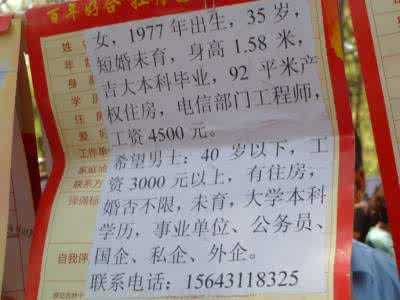 百年好合
女，1977年出生，35岁，
短婚未育，身高1.58米，
吉大本科毕业，92 平米产
权住房，电信部门工程师，
工资4500元。
希望男士：40 岁以下，工
资3000元以上，有住房，
婚否不限，未育，大学本科
学历，事业单位、公务员、
国企、私企、外企。
联系电话：15643118325
自我评